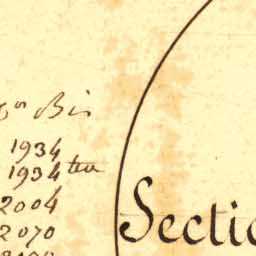 Bis
1934
1934 ter
2004
2070
Sectio